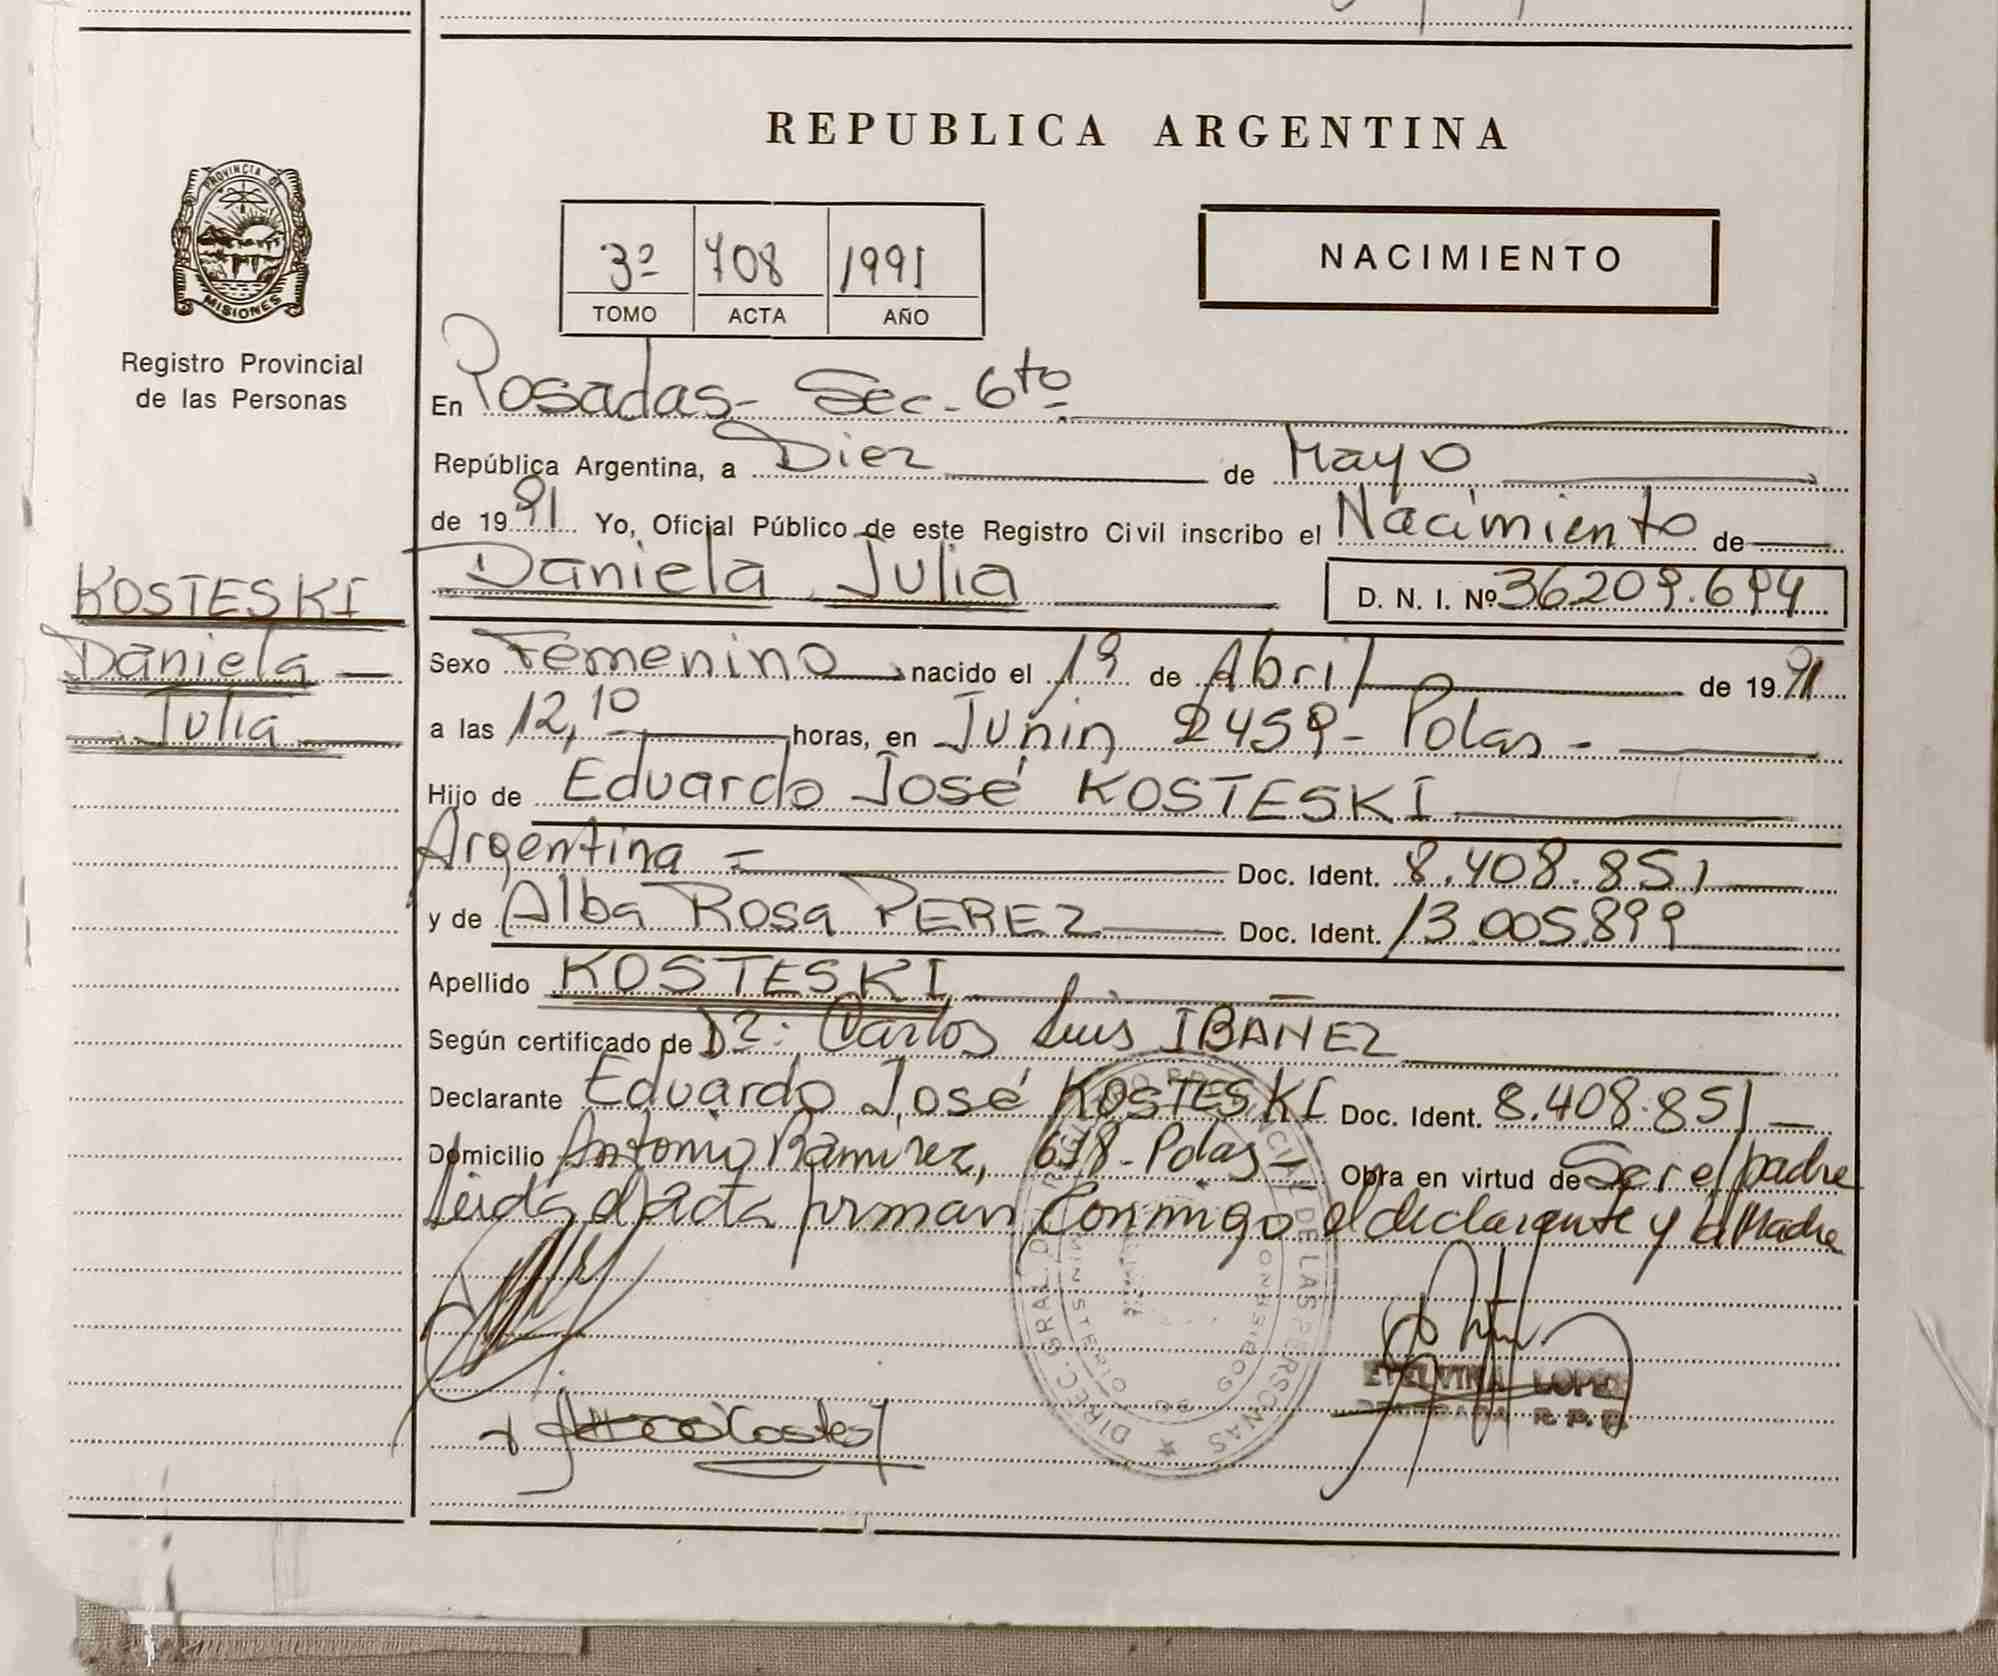 REPUBLICA ARGENTINA
PROVINCIA DE
MISIONES
Registro Provincial
de las Personas
3º 708 1991
TOMO ACTA AÑO
NACIMIENTO
En Posadas- Sec- 6to
República Argentina, a Diez de Mayo
de 1991 Yo, Oficial Público de este Registro Civil inscribo el Nacimiento de
Daniela Julia D. N. I. Nº 36209.694
KOSTESKI
Daniela
Julia
Sexo Femenino, nacido el 19 de Abril de 1991
a las 12,10 horas, en Junín 2459- Pdas-
Hijo de Eduardo José KOSTESKI
Argentina = Doc. Ident. 8.408.851
y de Alba Rosa PEREZ Doc. Ident. 13.005.899
Apellido KOSTESKI
Según certificado de Dº: Carlos Luis IBAÑEZ
Declarante Eduardo José KOSTESKI Doc. Ident. 8.408.851
Domicilio Antonio Ramirez, 618- Pdas- Obra en virtud de Ser el padre
Leida el acta firman Conmigo el declarante y la Madre
DIREC. GRAL. DEL REGISTRO PROVINCIAL DE LAS PERSONAS
MINISTERIO DE GOBIERNO
ETELVINA LOPEZ
DELEGADA R.P.P.